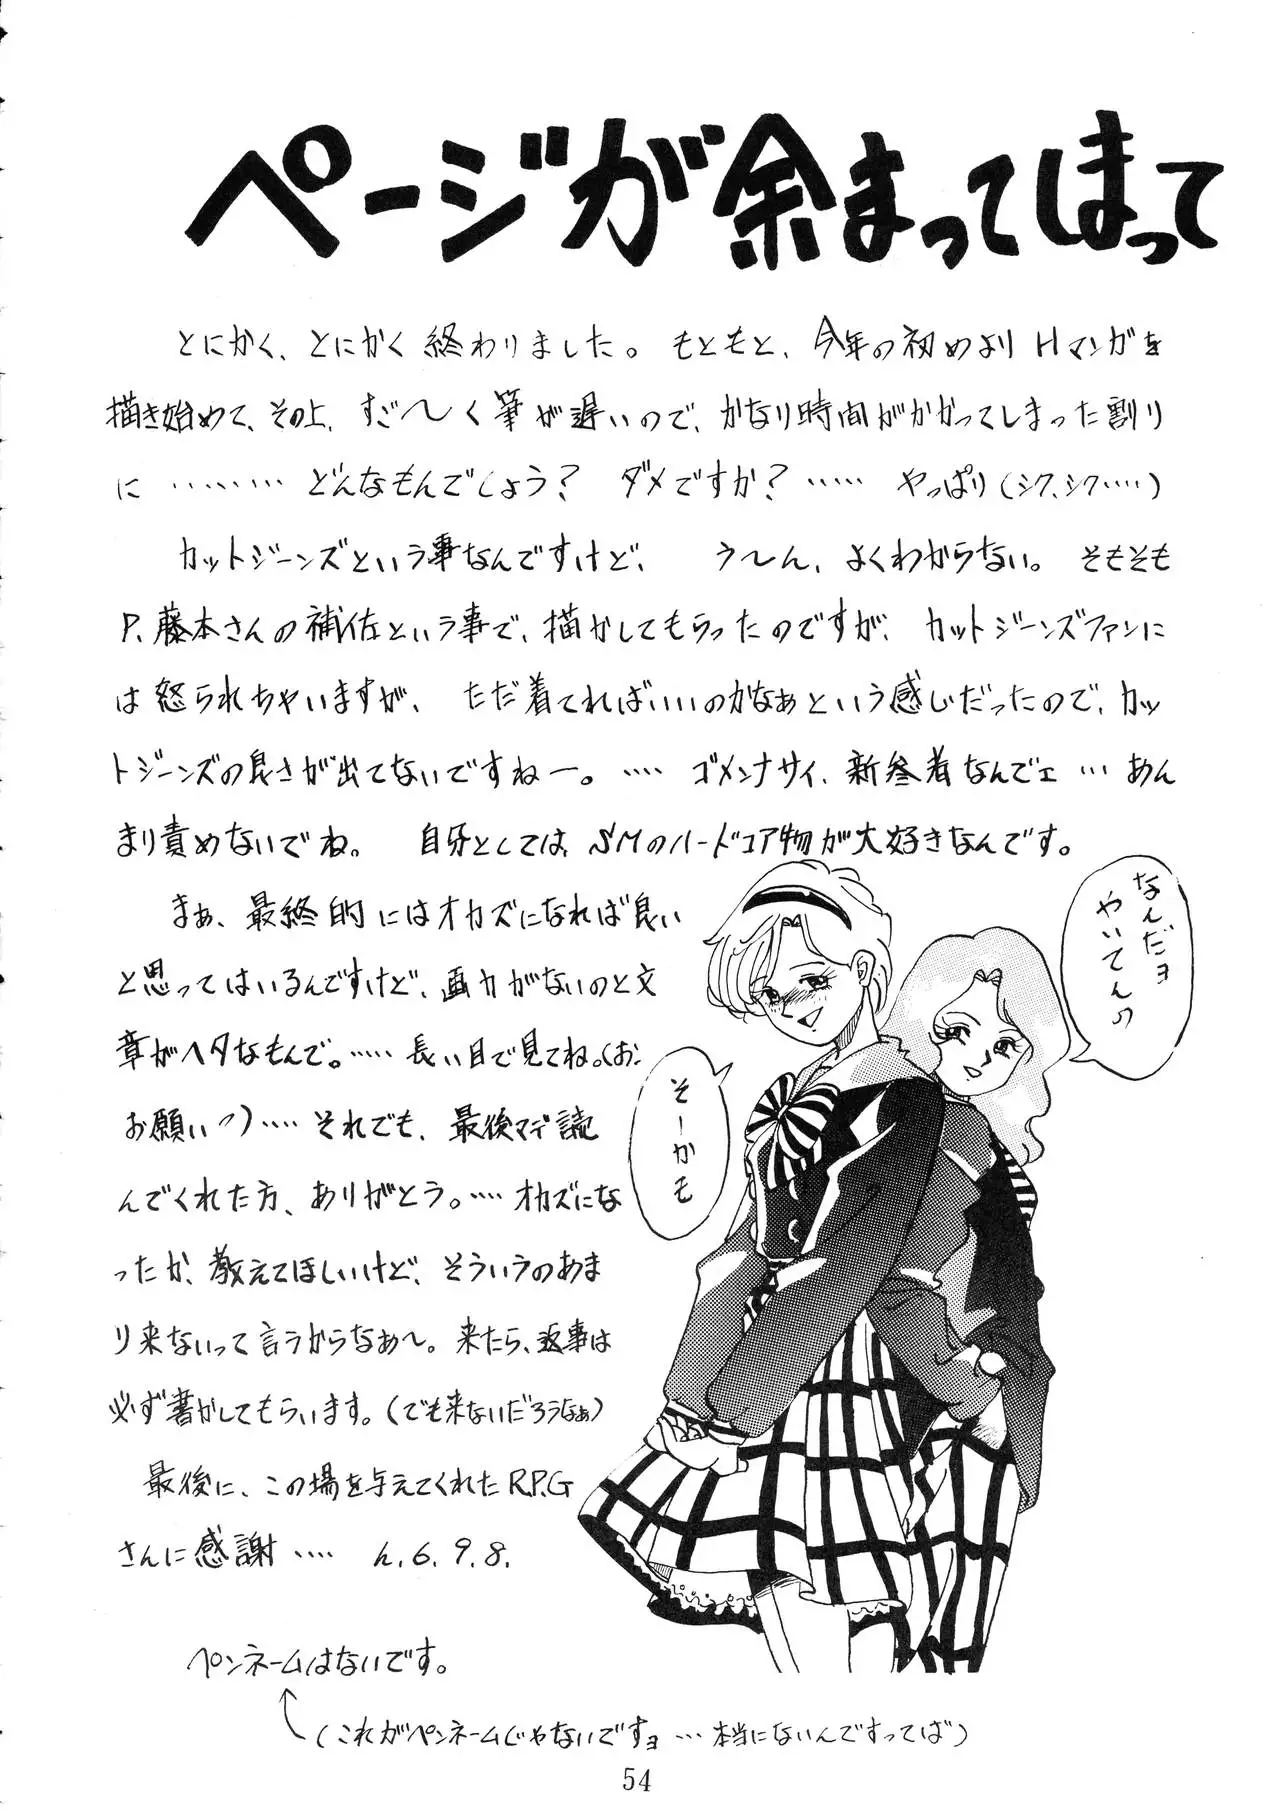 ページが余まってしまって
とにかく、とにかく終わりました。もともと、今年の初めよりHマンガを
描き始めて、その上、すご〜く筆が遅いので、かなり時間がかかってしまった割り
に ……… どんなもんでしょう? ダメですか? …… やっぱり(シク、シク……)
カットジーンズという事なんですけど、 う〜ん、よくわからない。そもそも
P、藤本さんの補佐という事で、描かしてもらったのですが、カットジーンズファンに
は怒られちゃいますが、ただ着てればいいのかなぁという感じだったので、カッ
トジーンズの良さが出てないですねー。…. ゴメンナサイ、新参者なんでェ … あん
まり責めないでね。 自分としては、SMのハードコア物が大好きなんです。
まぁ、最終的にはオカズになれば良い
と思ってはいるんですけど、画力がないのと文
章がヘタなもんで。…… 長い目で見てね。(お、
お願いっ)…. それでも、最後マデ読
んでくれた方、ありがとう。…. オカズにな
ったか、教えてほしいけど、そういうのあま
り来ないって言うからなぁ〜。来たら、返事は
必ず書かしてもらいます。(でも来ないだろうなぁ)
最後に、この場を与えてくれたR.P.G
さんに感謝 …. ん.6.9.8.
なんだョ
やいてんの
そーかも
ペンネームはないです。
(これがペンネームじゃないですョ … 本当にないんですってば)
54